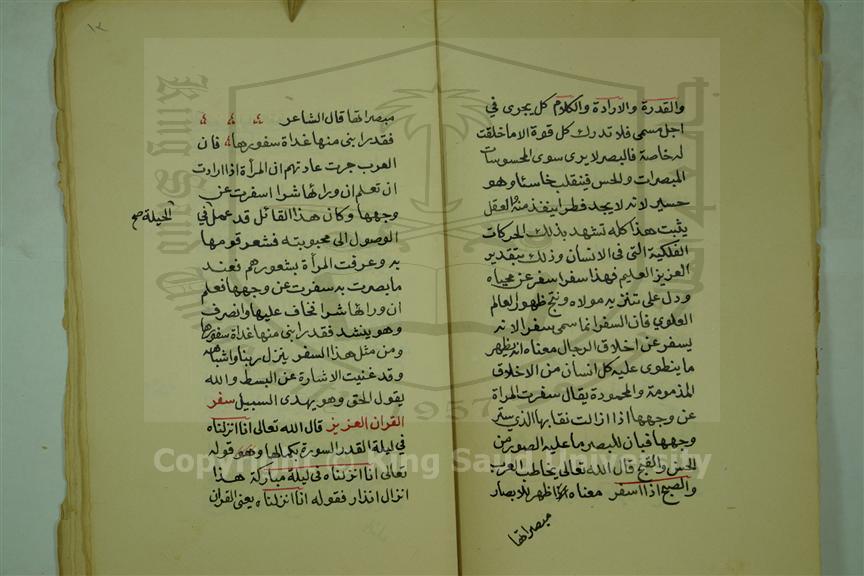 والقدرة والارادة والكلام كل يجرى في
اجل مسمى فلا تدرك كل قوة الا ما خلقت
له خاصة فالبصر لا يرى سوى المحسوسات
المبصرات والحس فينقلب خاسئا وهو
حسير لانه لا يجد فطرا ينفذ منه والعقل
يثبت هذا كله تشهد بذلك الحركات
الفلكية التى فى الانسان وذلك بتقدير
العزيز العليم فهذا سفر اسفر عن محياه
ودل على تنزيه مولاه ونتج ظهور العالم
العلوي فان السفر انما سمى سفرا لانه
يسفر عن اخلاق الرجال معناه انه يظهر
ما ينطوى عليه كل انسان من الاخلاق
المذمومة والمحمودة يقال سفرت المراة
عن وجهها اذا ازالت نقابها الذي ستر
وجهها فبان للبصر ما عليه الصور من
الحسن والقبح قال الله تعالى يخاطب العرب
والصبح اذا اسفر معناه اظهر للابصار
مبصراتها
١٢
مبصراتها قال الشاعر
فقد رابنى منها غداة سفورها فان
العرب جرت عادتهم ان المرأة اذا ارادت
ان تعلم ان وراها شرا اسفرت عن
وجهها وكان هذا القائل قد عمل في
الحيلة صح
الوصول الى محبوبته فشعر قومها
به وعرفت المرأة بشعورهم فعند
ما بصرت به سفرت عن وجهها فعلم
ان وراها شرا فخاف عليها وانصرف
وهو ينشد فقد رابنى منها غداة سفورها
ومن مثل هذا السفر ينزل ربنا واشباهه
وقد غنيت الاشارة عن البسط والله
يقول الحق وهو يهدى السبيل سفر
القران العزيز قال الله تعالى انا انزلناه
في ليلة القدر السورة بكمالها وهو قوله
تعالى انا انزلناه فى ليلة مباركة هذا
انزال انذار فقوله انا انزلناه يعنى القران
Copyright © King Saud University
1957